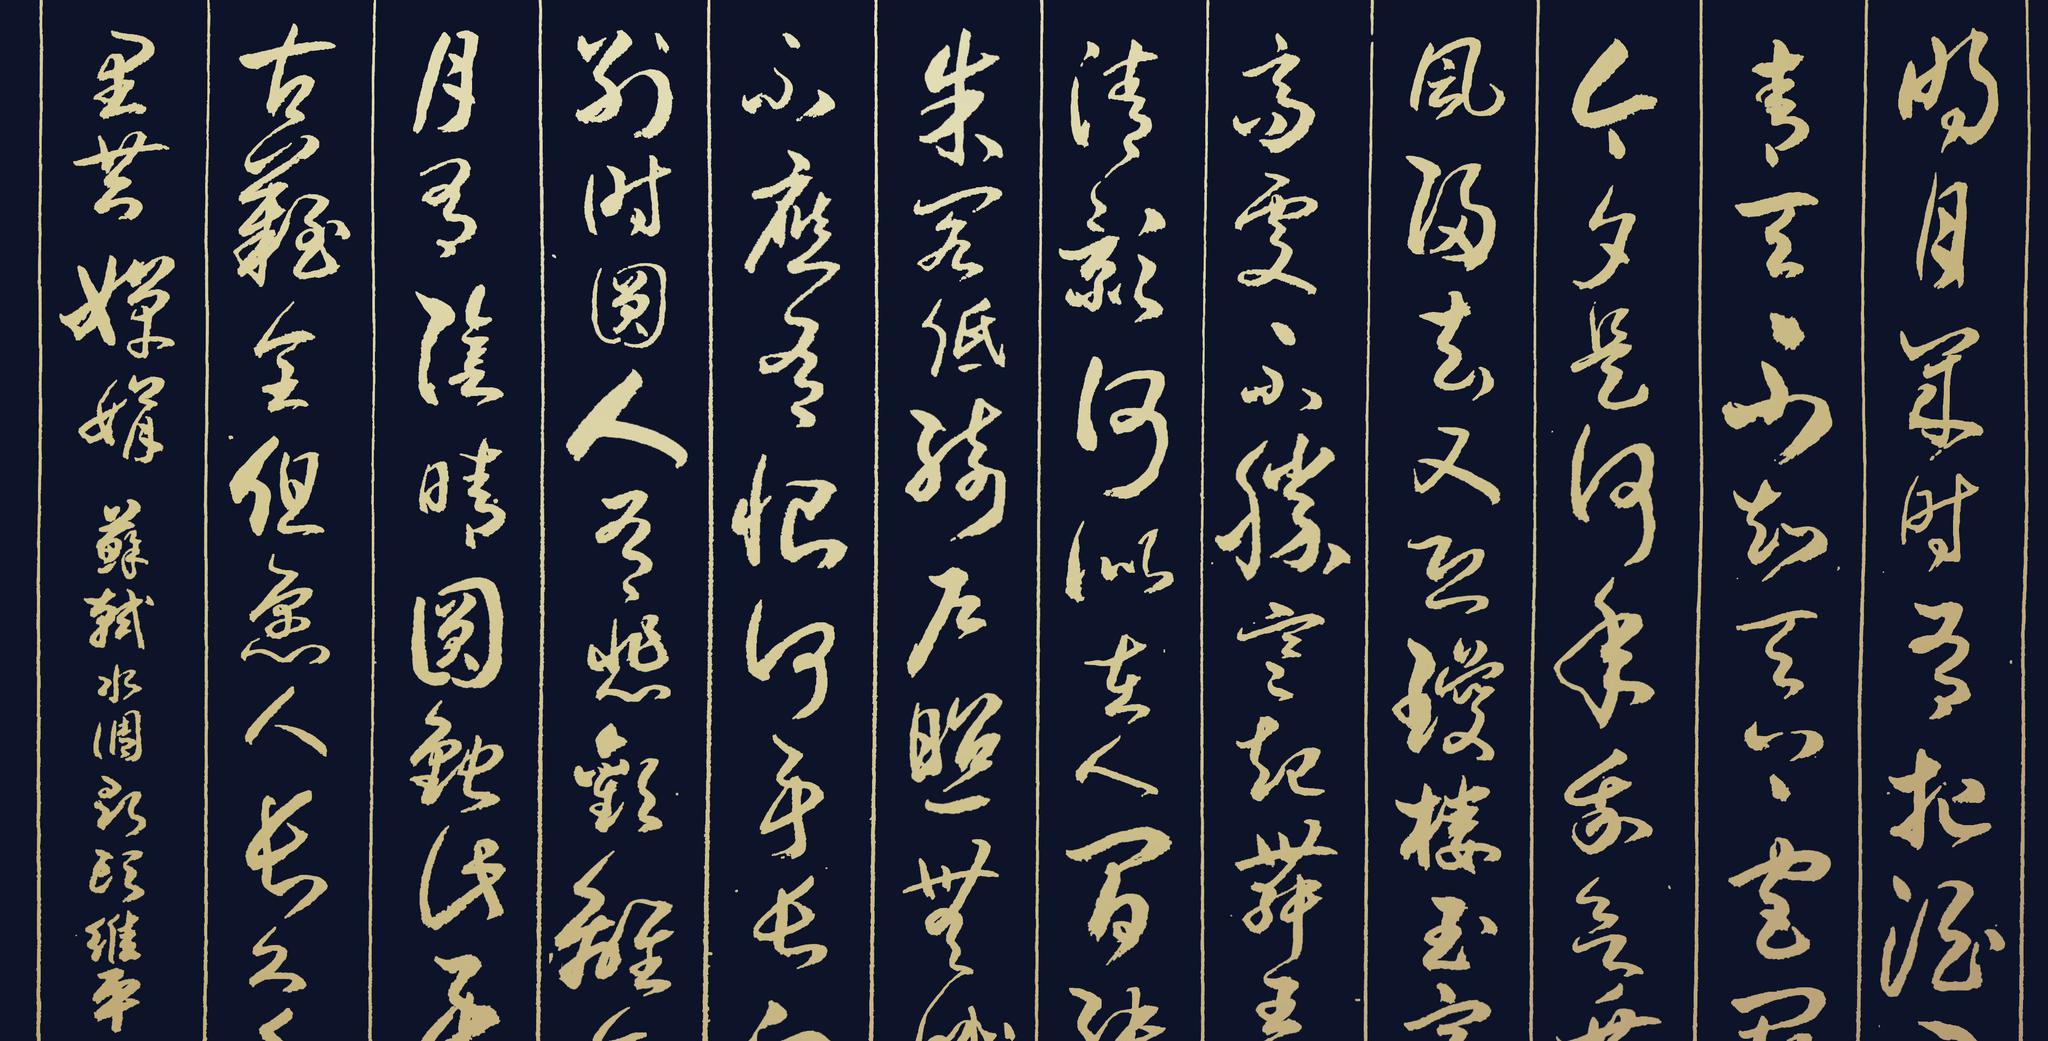 明月幾时有把酒
青天不知天上宫
今夕是何年我欲
風歸去又恐瓊樓玉宇
高處不勝寒起舞弄
清影何似在人間
朱閣低綺户照無
不應有恨何事長
別时圓人有悲歡離
月有陰晴圓缺此事
古難全但願人长久
里共嬋娟 蘇軾水调歌頭維平